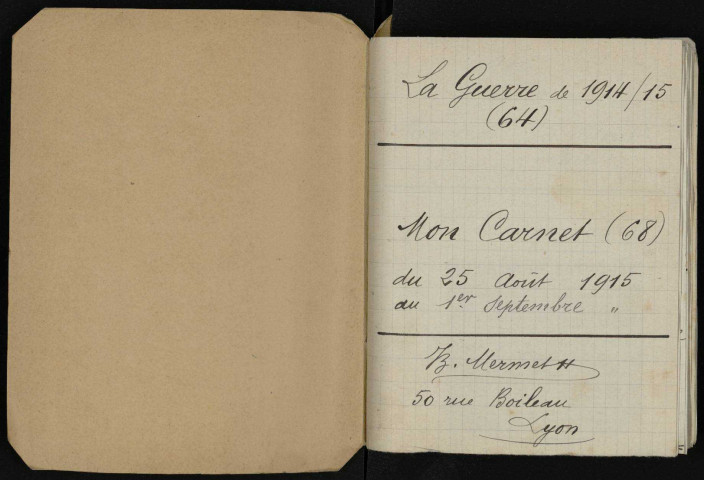 La Guerre de 1914/15
(64)
Mon Carnet (68)
du 25 Août 1915
au 1er Septembre "
B. Mermet
50 rue Boileau
Lyon